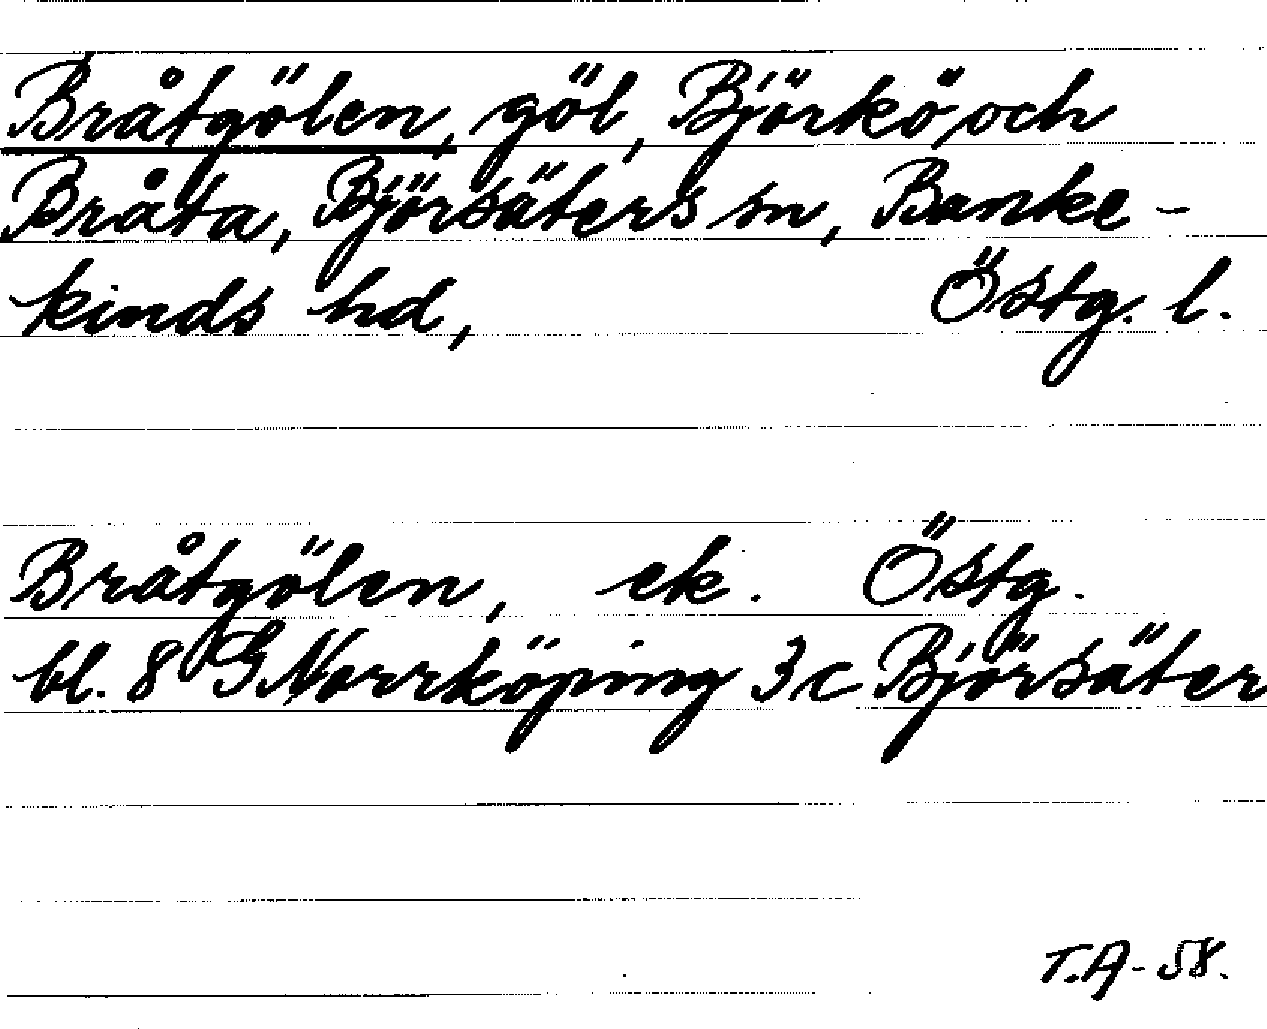 Bråtgölen, göl, Björkö och
Bråta, Björsäters sn, Banke-
kinds hd, Östg. l.
Bråtgölen, ek. Östg.
bl. 8 G Norrköping 3 c Björsäter
T.A-58.